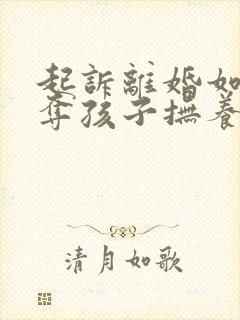 起訴離婚如
奪孩子撫養
清月如歌